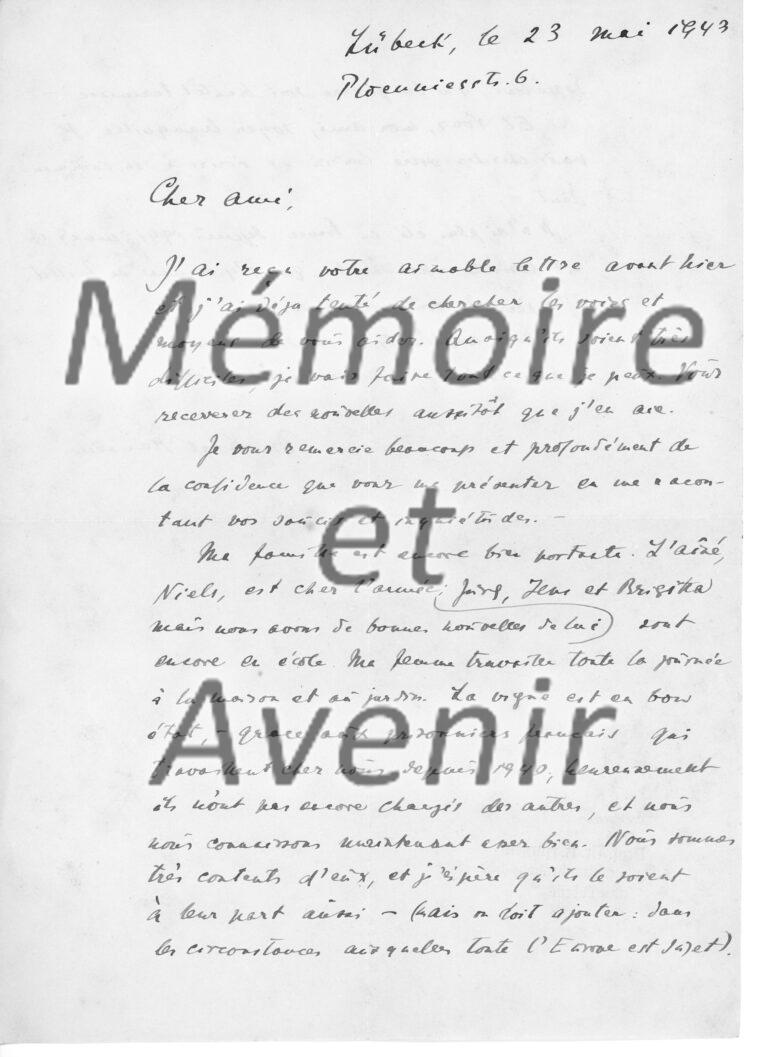 Lübeck, le 23 mai 1943
Ploenniesstr. 6.
Cher ami,
J'ai reçu votre aimable lettre avant hier
et j'ai déja tenté de chercher les voies et
moyens de vous aider. Quoiqu'ils soient très
difficiles, je vais faire tout ce que je peux. Vous
receverez des nouvelles aussitôt que j'en aie.
Je vous remercie beaucoup et profondément de
la confidence que vous me présentez en me racon-
tant vos soucis et inquiétudes. –
Ma famille est encore bien portante. L'aîné,
Niels, est chez l'armée; Jürg, Jens et Brigitta
mais nous avons de bonnes nouvelles de lui) sont
encore en école. Ma femme travaille toute la journée
à la maison et au jardin. La vigne est en bon
état, – grace aux prisonniers français qui
travaillent chez nous depuis 1940, heureusement
ils n'ont pas encore changés des autres, et nous
nous connaissons maintenant assez bien. Nous sommes
très contents d'eux, et j'éspère qu'ils le soient
à leur part aussi – (mais on doit ajouter: dans
les circonstances auxquelles toute l'Europe est sujet).
Mémoire
et
Avenir